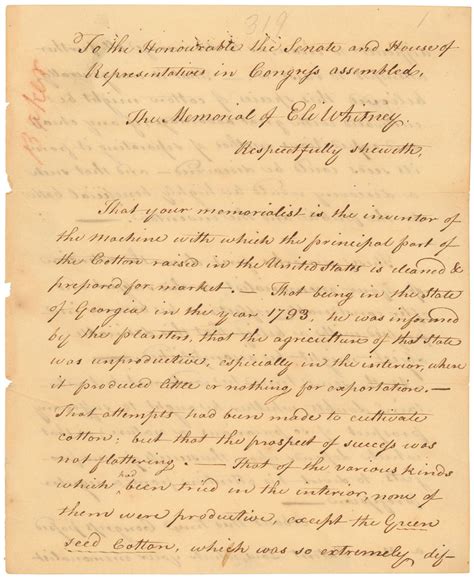 319
1
Baker
To the Honourable the Senate and House of
Representatives in Congress assembled,
The Memorial of Eli Whitney.
Respectfully sheweth,
That your memorialist is the inventor of
the Machine with which the principal part of
the Cotton raised in the United States is cleaned &
prepared for market. — That being in the State
of Georgia in the year 1793, he was informed
by the planters, that the agriculture of that State
was unproductive, especially in the interior, where
it produced little or nothing for exportation. —
That attempts had been made to cultivate
cotton; but that the prospect of success was
not flattering. — That of the various kinds
which had been tried in the interior, none of
them were productive, except the Green
seed Cotton, which was so extremely dif-